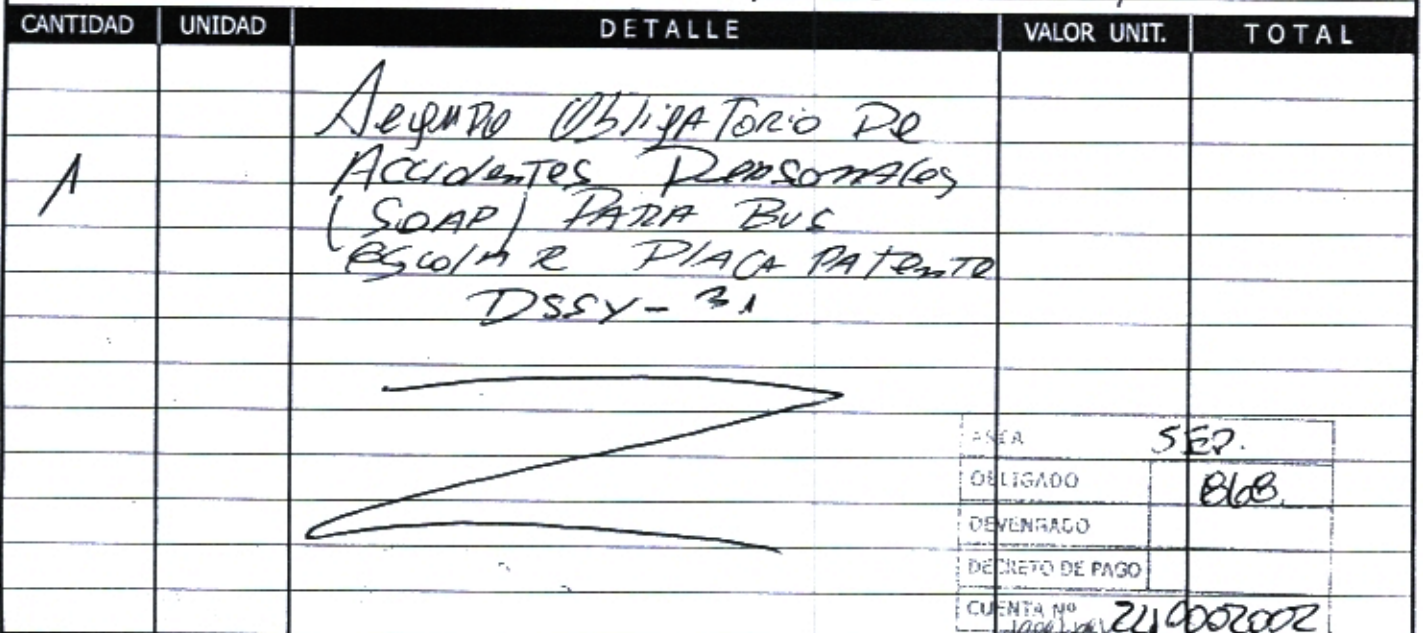 CANTIDAD UNIDAD DETALLE VALOR UNIT. TOTAL
Seguro Obligatorio De
1 Accidentes Personales
(SOAP) PARA BUS
escolar PlACA PATente
DSSY-31
AREA SEP.
OBLIGADO 868.
DEVENGADO
DECRETO DE PAGO
CUENTA Nº